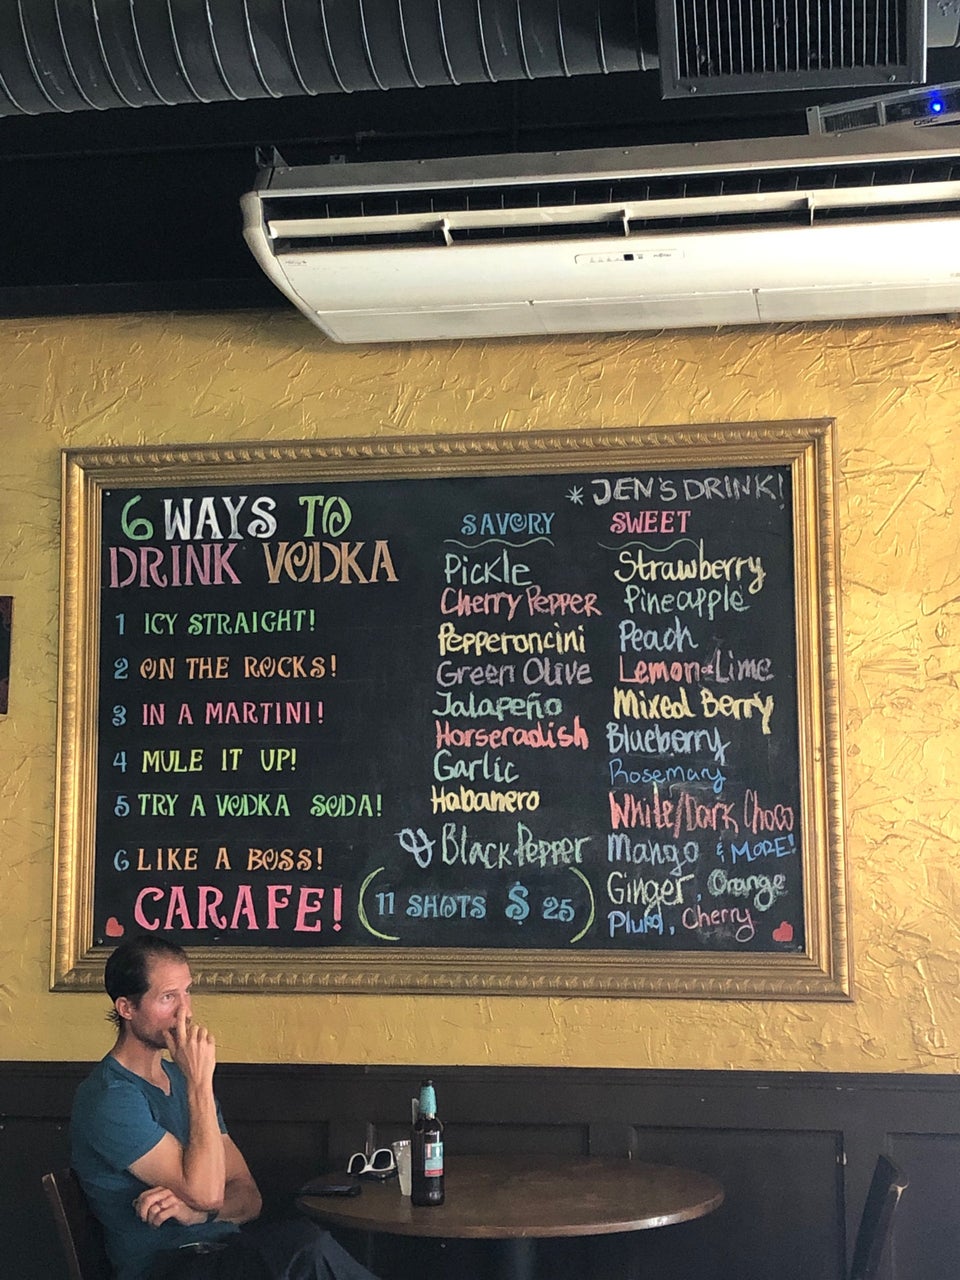 6 WAYS TO
DRINK VODKA
1 ICY STRAIGHT!
2 ON THE ROCKS!
3 IN A MARTINI!
4 MULE IT UP!
5 TRY A VODKA SODA!
6 LIKE A BOSS!
CARAFE! (11 SHOTS $ 25)
SAVORY
Pickle
Cherry Pepper
Pepperoncini
Green Olive
Jalapeño
Horseradish
Garlic
Habanero
& Black Pepper
* JEN'S DRINK!
SWEET
Strawberry
Pineapple
Peach
Lemon or Lime
Mixed Berry
Blueberry
Rosemary
White/Dark Choco
Mango & MORE!
Ginger, Orange
Plum, Cherry
QSC